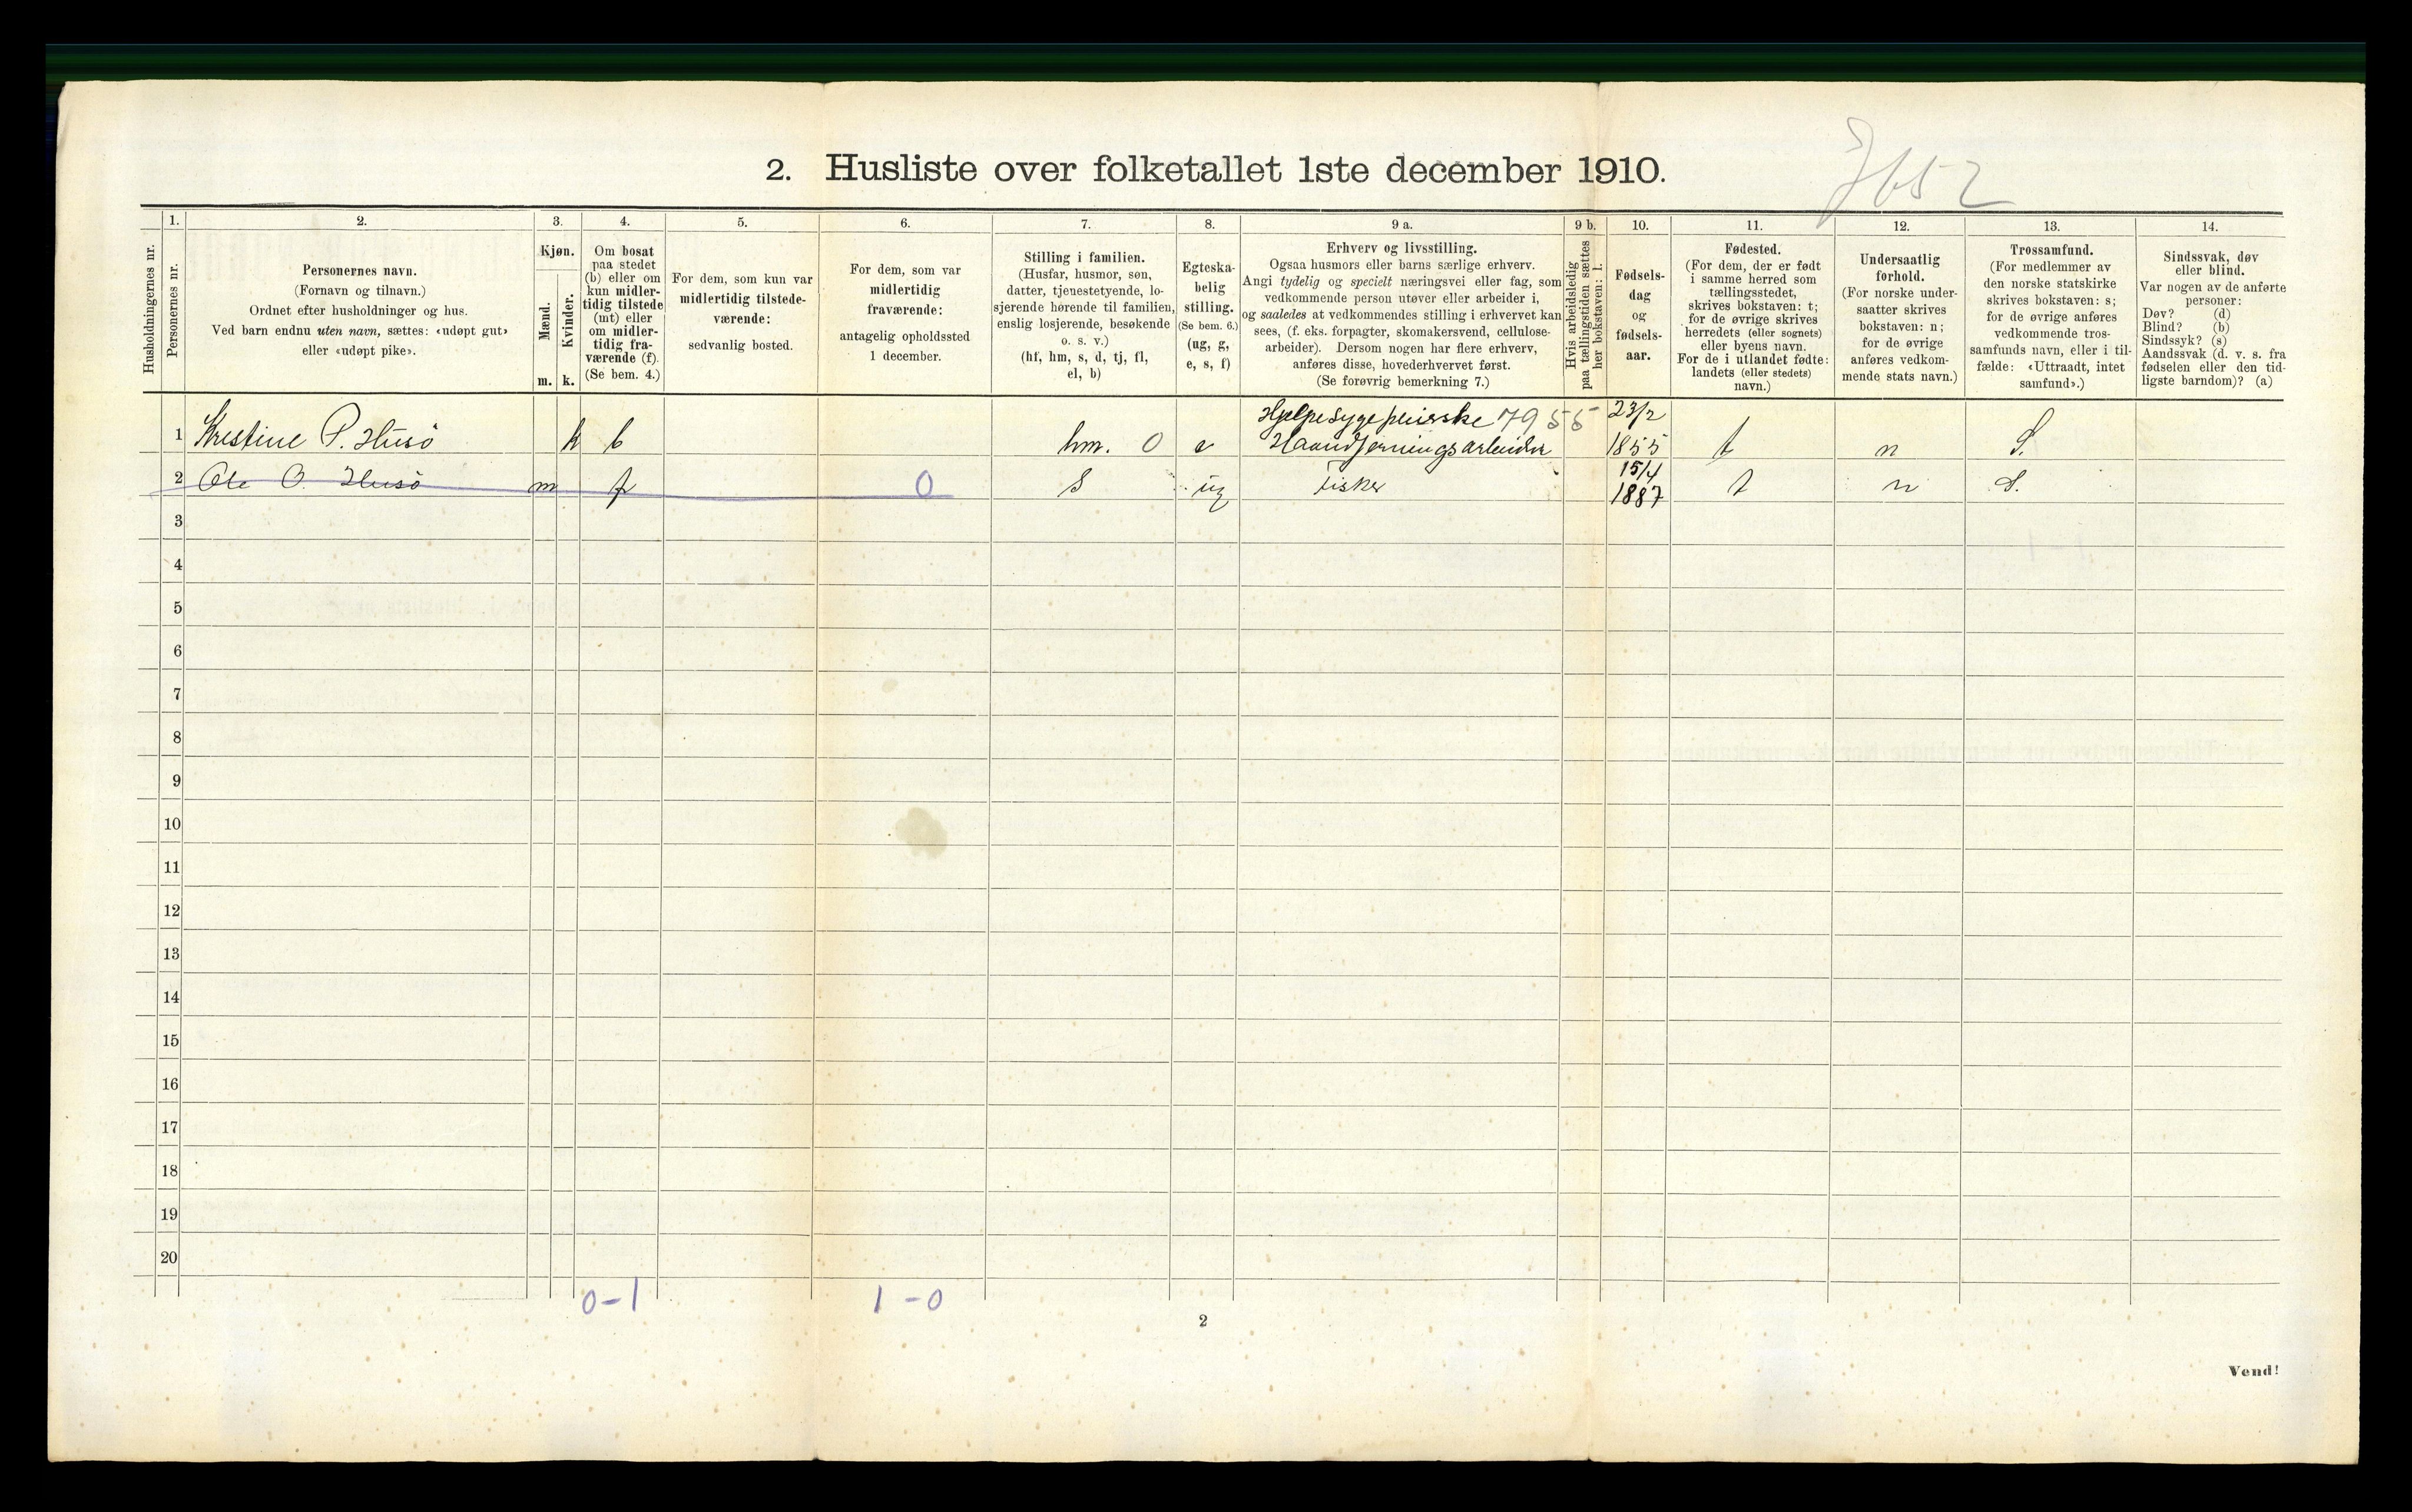 2. Husliste over folketallet 1ste december 1910.
1. 2. 3. 4. 5. 6. 7. 8. 9 a. 9 b. 10. 11. 12. 13. 14.
Husholdningernes nr.
Personernes nr.
Personernes navn.
(Fornavn og tilnavn.)
Ordnet efter husholdninger og hus.
Ved barn endnu uten navn, sættes: «udøpt gut»
eller «udøpt pike».
Kjøn.
Mænd.
Kvinder.
m. k.
Om bosat
paa stedet
(b) eller om
kun midler-
tidig tilstede
(mt) eller
om midler-
tidig fra-
værende (f).
(Se bem. 4.)
For dem, som kun var
midlertidig tilstede-
værende:
sedvanlig bosted.
For dem, som var
midlertidig
fraværende:
antagelig opholdssted
1 december.
Stilling i familien.
(Husfar, husmor, søn,
datter, tjenestetyende, lo-
sjerende hørende til familien,
enslig losjerende, besøkende
o. s. v.)
(hf, hm, s, d, tj, fl,
el, b)
Egteska-
belig
stilling.
(Se bem. 6.)
(ug, g,
e, s, f)
Erhverv og livsstilling.
Ogsaa husmors eller barns særlige erhverv.
Angi tydelig og specielt næringsvei eller fag, som
vedkommende person utøver eller arbeider i,
og saaledes at vedkommendes stilling i erhvervet kan
sees, (f. eks. forpagter, skomakersvend, cellulose-
arbeider). Dersom nogen har flere erhverv,
anføres disse, hovederhvervet først.
(Se forøvrig bemerkning 7.)
Hvis arbeidsledig
paa tællingstiden sættes
her bokstaven: l.
Fødsels-
dag
og
fødsels-
aar.
Fødested.
(For dem, der er født
i samme herred som
tællingsstedet,
skrives bokstaven: t;
for de øvrige skrives
herredets (eller sognets)
eller byens navn.
For de i utlandet fødte:
landets (eller stedets)
navn.)
Undersaatlig
forhold.
(For norske under-
saatter skrives
bokstaven: n;
for de øvrige
anføres vedkom-
mende stats navn.)
Trossamfund.
(For medlemmer av
den norske statskirke
skrives bokstaven: s;
for de øvrige anføres
vedkommende tros-
samfunds navn, eller i til-
fælde: «Uttraadt, intet
samfund».)
Sindssvak, døv
eller blind.
Var nogen av de anførte
personer:
Døv? (d)
Blind? (b)
Sindssyk? (s)
Aandssvak (d. v. s. fra
fødselen eller den tid-
ligste barndom)? (a)
Hjelpesygepleierske 7955 23/2
1 Kristine P. Husö k b hm. 0 e Haandgerningsarbeider 1855 t n S.
2 Ole O. Husö m f 0 s ug Fisker 15/4 1887 t n S.
3
4
5
6
7
8
9
10
11
12
13
14
15
16
17
18
19
20
0-1 1-0
2
Vend!